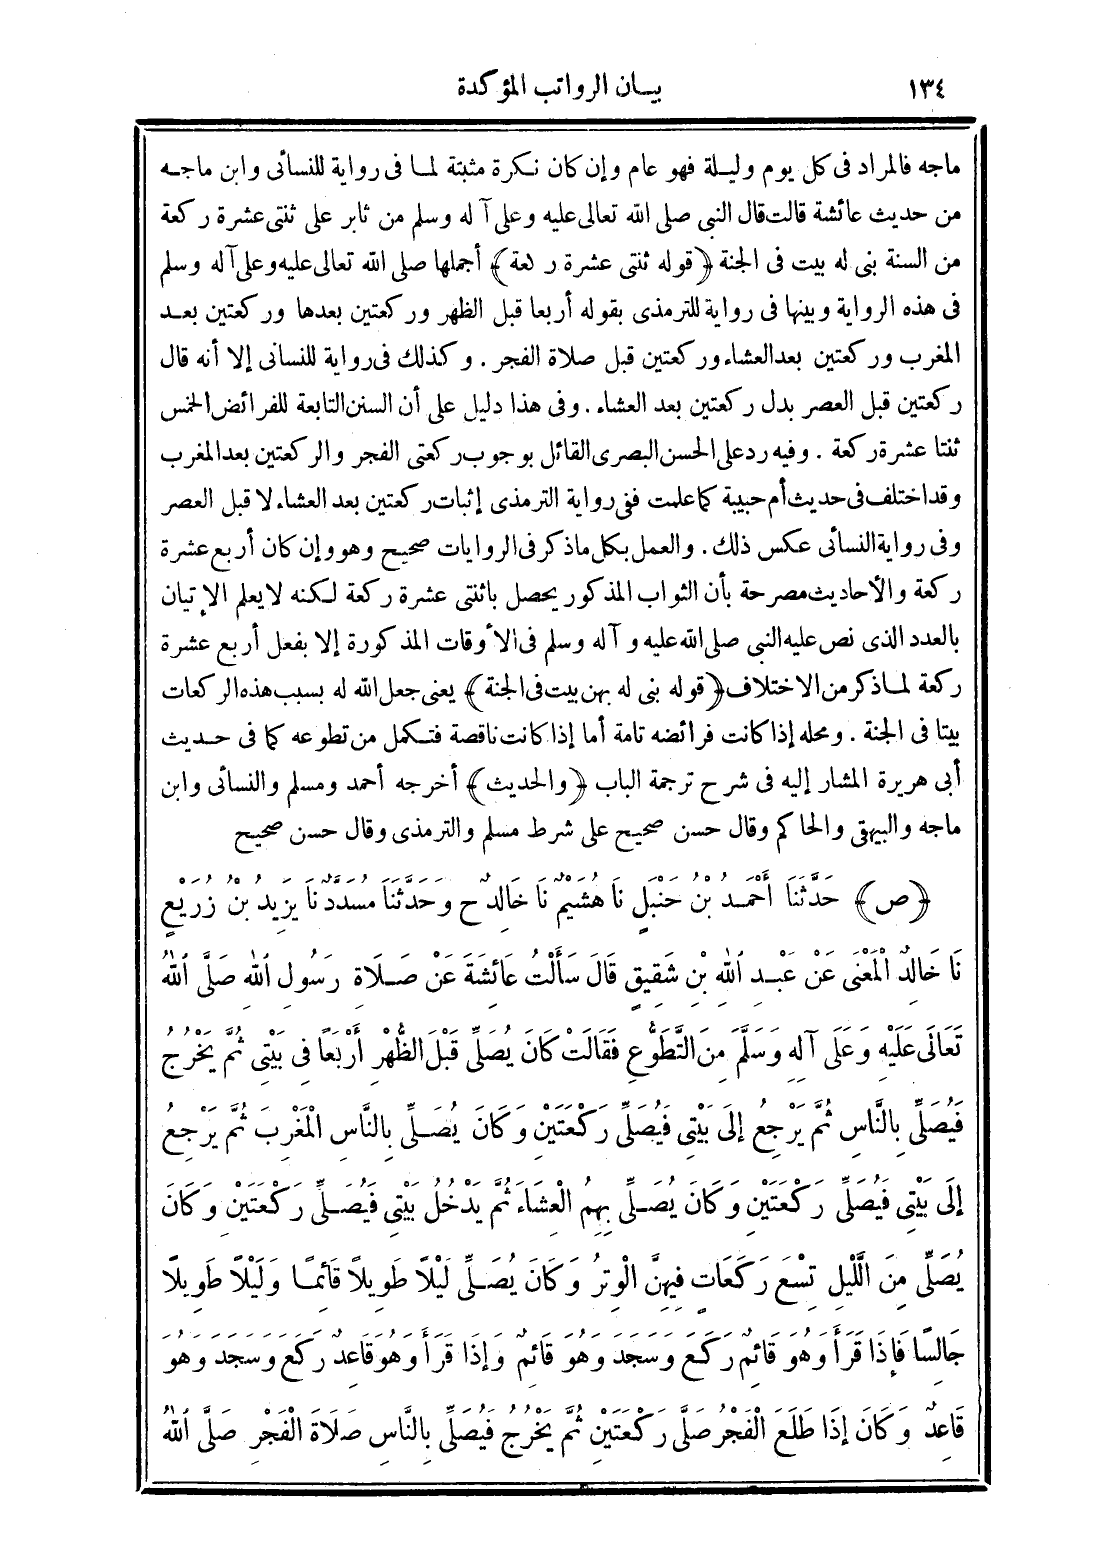 ١٣٤
بيان الرواتب المؤكدة
ماجه فالمراد فى كل يوم وليلة فهو عام وإن كان نكرة مثبتة لما فى رواية للنسائى وابن ماجه
من حديث عائشة قالت قال النبى صلى الله تعالى عليه وعلى آله وسلم من ثابر على ثنتى عشرة ركعة
من السنة بنى له بيت فى الجنة ﴿قوله ثنتى عشرة ركعة﴾ أجملها صلى الله تعالى عليه وعلى آله وسلم
فى هذه الرواية وبينها فى رواية للترمذى بقوله أربعا قبل الظهر وركعتين بعدها وركعتين بعد
المغرب وركعتين بعد العشاء وركعتين قبل صلاة الفجر . وكذلك فى رواية للنسائى إلا أنه قال
ركعتين قبل العصر بدل ركعتين بعد العشاء . وفى هذا دليل على أن السنن التابعة للفرائض الخمس
ثنتا عشرة ركعة . وفيه رد على الحسن البصرى القائل بوجوب ركعتى الفجر والركعتين بعد المغرب
وقد اختلف فى حديث أم حبيبة كما علمت ففى رواية الترمذى إثبات ركعتين بعد العشاء لا قبل العصر
وفى رواية النسائى عكس ذلك . والعمل بكل ما ذكر فى الروايات صحيح وهو وإن كان أربع عشرة
ركعة والأحاديث مصرحة بأن الثواب المذكور يحصل باثنتى عشرة ركعة لكنه لا يعلم الإتيان
بالعدد الذى نص عليه النبى صلى الله عليه وآله وسلم فى الأوقات المذكورة إلا بفعل أربع عشرة
ركعة لما ذكر من الاختلاف ﴿قوله بنى له بهن بيت فى الجنة﴾ يعنى جعل الله له بسبب هذه الركعات
بيتا فى الجنة . ومحله إذا كانت فرائضه تامة أما إذا كانت ناقصة فتكمل من تطوعه كما فى حديث
أبى هريرة المشار إليه فى شرح ترجمة الباب ﴿والحديث﴾ أخرجه أحمد ومسلم والنسائى وابن
ماجه والبيهقى والحاكم وقال حسن صحيح على شرط مسلم والترمذى وقال حسن صحيح
﴿ص﴾ حَدَّثَنَا أَحْمَدُ بْنُ حَنْبَلٍ نَا هُشَيْمٌ نَا خَالِدٌ ح وَحَدَّثَنَا مُسَدَّدٌ نَا يَزِيدُ بْنُ زُرَيْعٍ
نَا خَالِدٌ الْمَعْنَى عَنْ عَبْدِ اللهِ بْنِ شَقِيقٍ قَالَ سَأَلْتُ عَائِشَةَ عَنْ صَلَاةِ رَسُولِ اللهِ صَلَّى اللهُ
تَعَالَى عَلَيْهِ وَعَلَى آلِهِ وَسَلَّمَ مِنَ التَّطَوُّعِ فَقَالَتْ كَانَ يُصَلِّى قَبْلَ الظُّهْرِ أَرْبَعًا فِى بَيْتِى ثُمَّ يَخْرُجُ
فَيُصَلِّى بِالنَّاسِ ثُمَّ يَرْجِعُ إِلَى بَيْتِى فَيُصَلِّى رَكْعَتَيْنِ وَكَانَ يُصَلِّى بِالنَّاسِ الْمَغْرِبَ ثُمَّ يَرْجِعُ
إِلَى بَيْتِى فَيُصَلِّى رَكْعَتَيْنِ وَكَانَ يُصَلِّى بِهِمُ الْعِشَاءَ ثُمَّ يَدْخُلُ بَيْتِى فَيُصَلِّى رَكْعَتَيْنِ وَكَانَ
يُصَلِّى مِنَ اللَّيْلِ تِسْعَ رَكَعَاتٍ فِيهِنَّ الْوِتْرُ وَكَانَ يُصَلِّى لَيْلًا طَوِيلًا قَائِمًا وَلَيْلًا طَوِيلًا
جَالِسًا فَإِذَا قَرَأَ وَهُوَ قَائِمٌ رَكَعَ وَسَجَدَ وَهُوَ قَائِمٌ وَإِذَا قَرَأَ وَهُوَ قَاعِدٌ رَكَعَ وَسَجَدَ وَهُوَ
قَاعِدٌ وَكَانَ إِذَا طَلَعَ الْفَجْرُ صَلَّى رَكْعَتَيْنِ ثُمَّ يَخْرُجُ فَيُصَلِّى بِالنَّاسِ صَلَاةَ الْفَجْرِ صَلَّى اللهُ